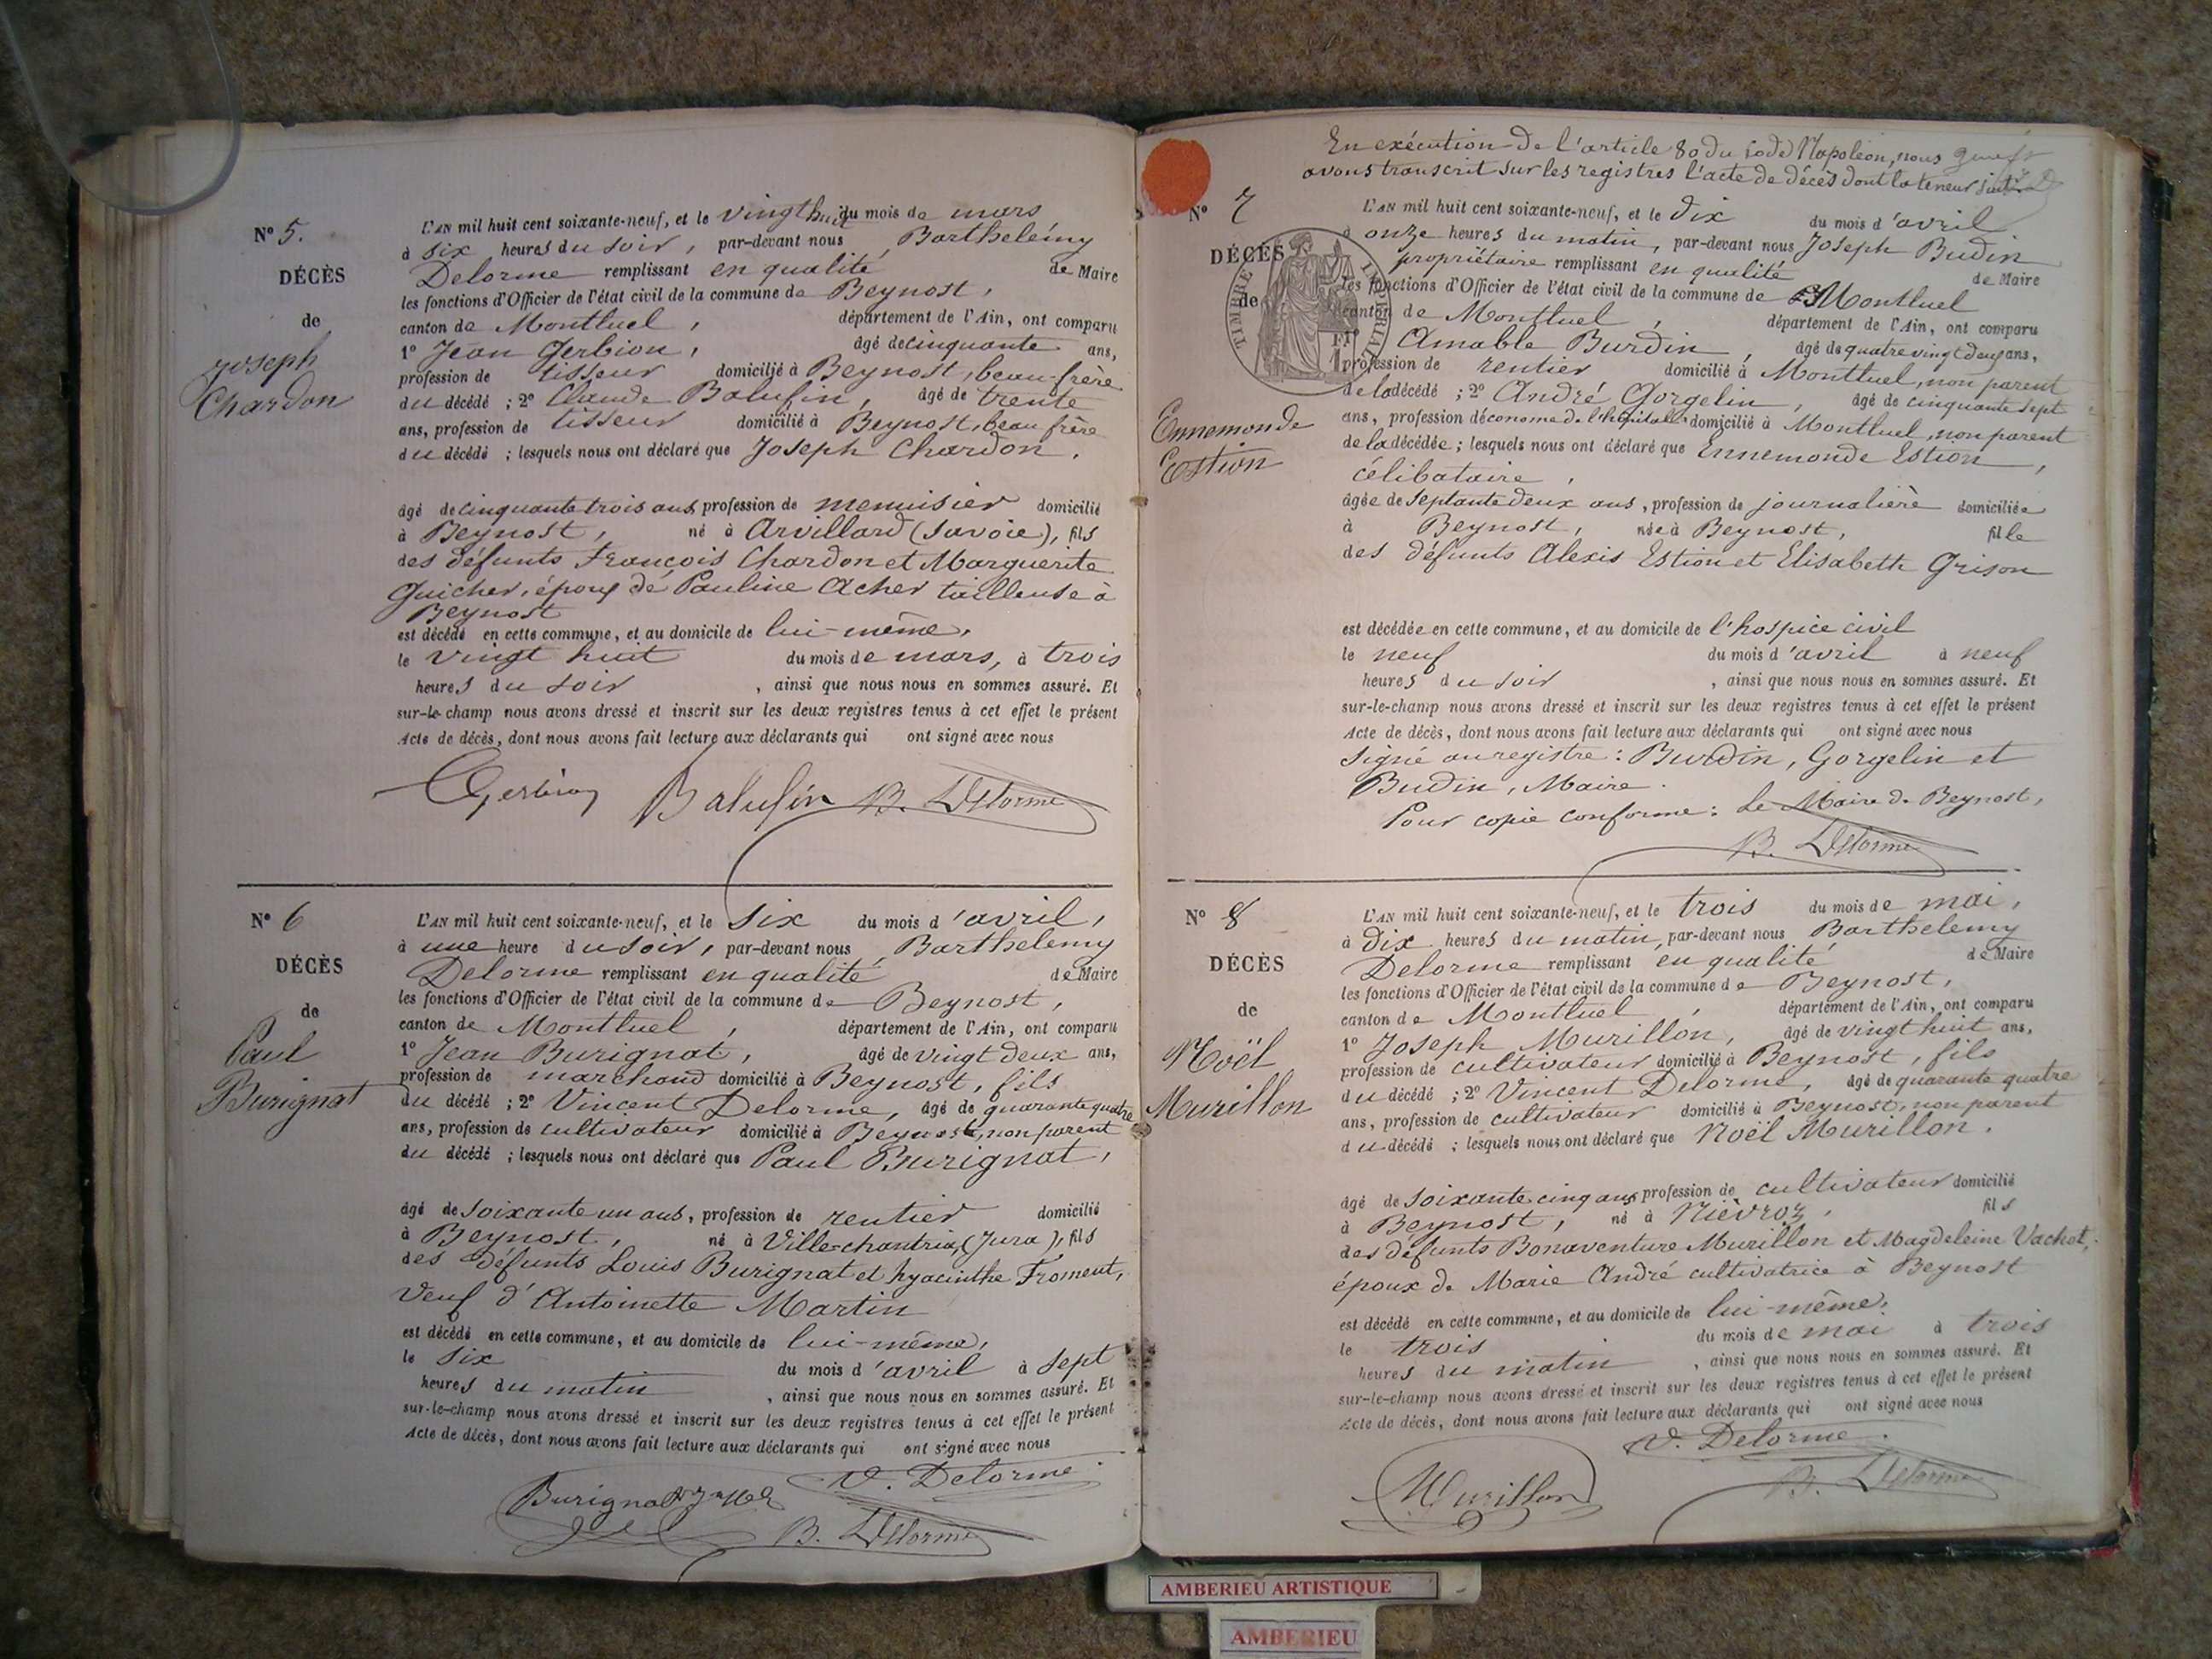 N° 5.
DÉCÈS
de
Joseph
Chardon
L'AN mil huit cent soixante-neuf, et le vingt huit du mois de mars
à six heures du soir, par-devant nous Barthelémy
Delorme remplissant en qualité de Maire
les fonctions d'Officier de l'état civil de la commune de Beynost,
canton de Montluel, département de l'Ain, ont comparu
1° Jean Gerbion, âgé de cinquante ans,
profession de tisseur domicilié à Beynost, beau-frère
du décédé ; 2° Claude Balufin, âgé de trente
ans, profession de tisseur domicilié à Beynost, beau frère
du décédé ; lesquels nous ont déclaré que Joseph Chardon,
âgé de cinquante trois ans, profession de menuisier domicilié
à Beynost, né à Arvillard (Savoie), fils
des défunts François Chardon et Marguerite
Guicher, époux de Pauline Acher tailleuse à
Beynost
est décédé en cette commune, et au domicile de lui-même,
le vingt huit du mois de mars, à trois
heures du soir, ainsi que nous nous en sommes assuré. Et
sur-le-champ nous avons dressé et inscrit sur les deux registres tenus à cet effet le présent
Acte de décès, dont nous avons fait lecture aux déclarants qui ont signé avec nous
Gerbion Balufin B. Delorme
N° 6
DÉCÈS
de
Paul
Burignat
L'AN mil huit cent soixante-neuf, et le six du mois d'avril,
à une heure du soir, par-devant nous Barthelemy
Delorme remplissant en qualité de Maire
les fonctions d'Officier de l'état civil de la commune de Beynost,
canton de Montluel, département de l'Ain, ont comparu
1° Jean Burignat, âgé de vingt deux ans,
profession de marchand domicilié à Beynost, fils
du décédé ; 2° Vincent Delorme, âgé de quarante quatre
ans, profession de cultivateur domicilié à Beynost, non parent
du décédé ; lesquels nous ont déclaré que Paul Burignat,
âgé de soixante un ans, profession de rentier domicilié
à Beynost, né à Ville-chantria, (Jura), fils
des défunts Louis Burignat et hyacinthe Froment,
veuf d'Antoinette Martin
est décédé en cette commune, et au domicile de lui-même,
le six du mois d'avril à sept
heures du matin, ainsi que nous nous en sommes assuré. Et
sur-le-champ nous avons dressé et inscrit sur les deux registres tenus à cet effet le présent
Acte de décès, dont nous avons fait lecture aux déclarants qui ont signé avec nous
Burignat V. Delorme
B. Delorme
En exécution de l'article 80 du Code Napoléon, nous
avons transcrit sur les registres l'acte de décès dont la teneur suit
N° 7
DÉCÈS
de
Ennemonde
Estion
TIMBRE IMPERIAL
1 Fr
L'AN mil huit cent soixante-neuf, et le dix du mois d'avril
à onze heures du matin, par-devant nous Joseph Budin
propriétaire remplissant en qualité de Maire
les fonctions d'Officier de l'état civil de la commune de Montluel
canton de Montluel, département de l'Ain, ont comparu
1° Amable Burdin, âgé de quatre vingt deux ans,
profession de rentier domicilié à Montluel, non parent
de la décédé ; 2° André Gorgelin, âgé de cinquante sept
ans, profession d'économe de l'hôpital domicilié à Montluel, non parent
de la décédée ; lesquels nous ont déclaré que Ennemonde Estion,
célibataire,
âgée de septante deux ans, profession de journalière domiciliée
à Beynost, née à Beynost, fille
des défunts Alexis Estion et Elisabeth Grison
est décédée en cette commune, et au domicile de l'hospice civil
le neuf du mois d'avril à neuf
heures du soir, ainsi que nous nous en sommes assuré. Et
sur-le-champ nous avons dressé et inscrit sur les deux registres tenus à cet effet le présent
Acte de décès, dont nous avons fait lecture aux déclarants qui ont signé avec nous
Signé au registre : Burdin, Gorgelin et
Budin, Maire.
Pour copie conforme : Le Maire de Beynost,
B. Delorme
N° 8
DÉCÈS
de
Noël
Murillon
L'AN mil huit cent soixante-neuf, et le trois du mois de mai,
à dix heures du matin, par-devant nous Barthelemy
Delorme remplissant en qualité de Maire
les fonctions d'Officier de l'état civil de la commune de Beynost,
canton de Montluel, département de l'Ain, ont comparu
1° Joseph Murillon, âgé de vingt huit ans,
profession de cultivateur domicilié à Beynost, fils
du décédé ; 2° Vincent Delorme, âgé de quarante quatre
ans, profession de cultivateur domicilié à Beynost, non parent
du décédé ; lesquels nous ont déclaré que Noël Murillon.
âgé de soixante cinq ans profession de cultivateur domicilié
à Beynost, né à Nièvroz, fils
des défunts Bonaventure Murillon et Magdeleine Vachot,
époux de Marie André cultivatrice à Beynost
est décédé en cette commune, et au domicile de lui-même,
le trois du mois de mai à trois
heures du matin, ainsi que nous nous en sommes assuré. Et
sur-le-champ nous avons dressé et inscrit sur les deux registres tenus à cet effet le présent
Acte de décès, dont nous avons fait lecture aux déclarants qui ont signé avec nous
V. Delorme
Murillon B. Delorme
AMBERIEU ARTISTIQUE
AMBERIEU